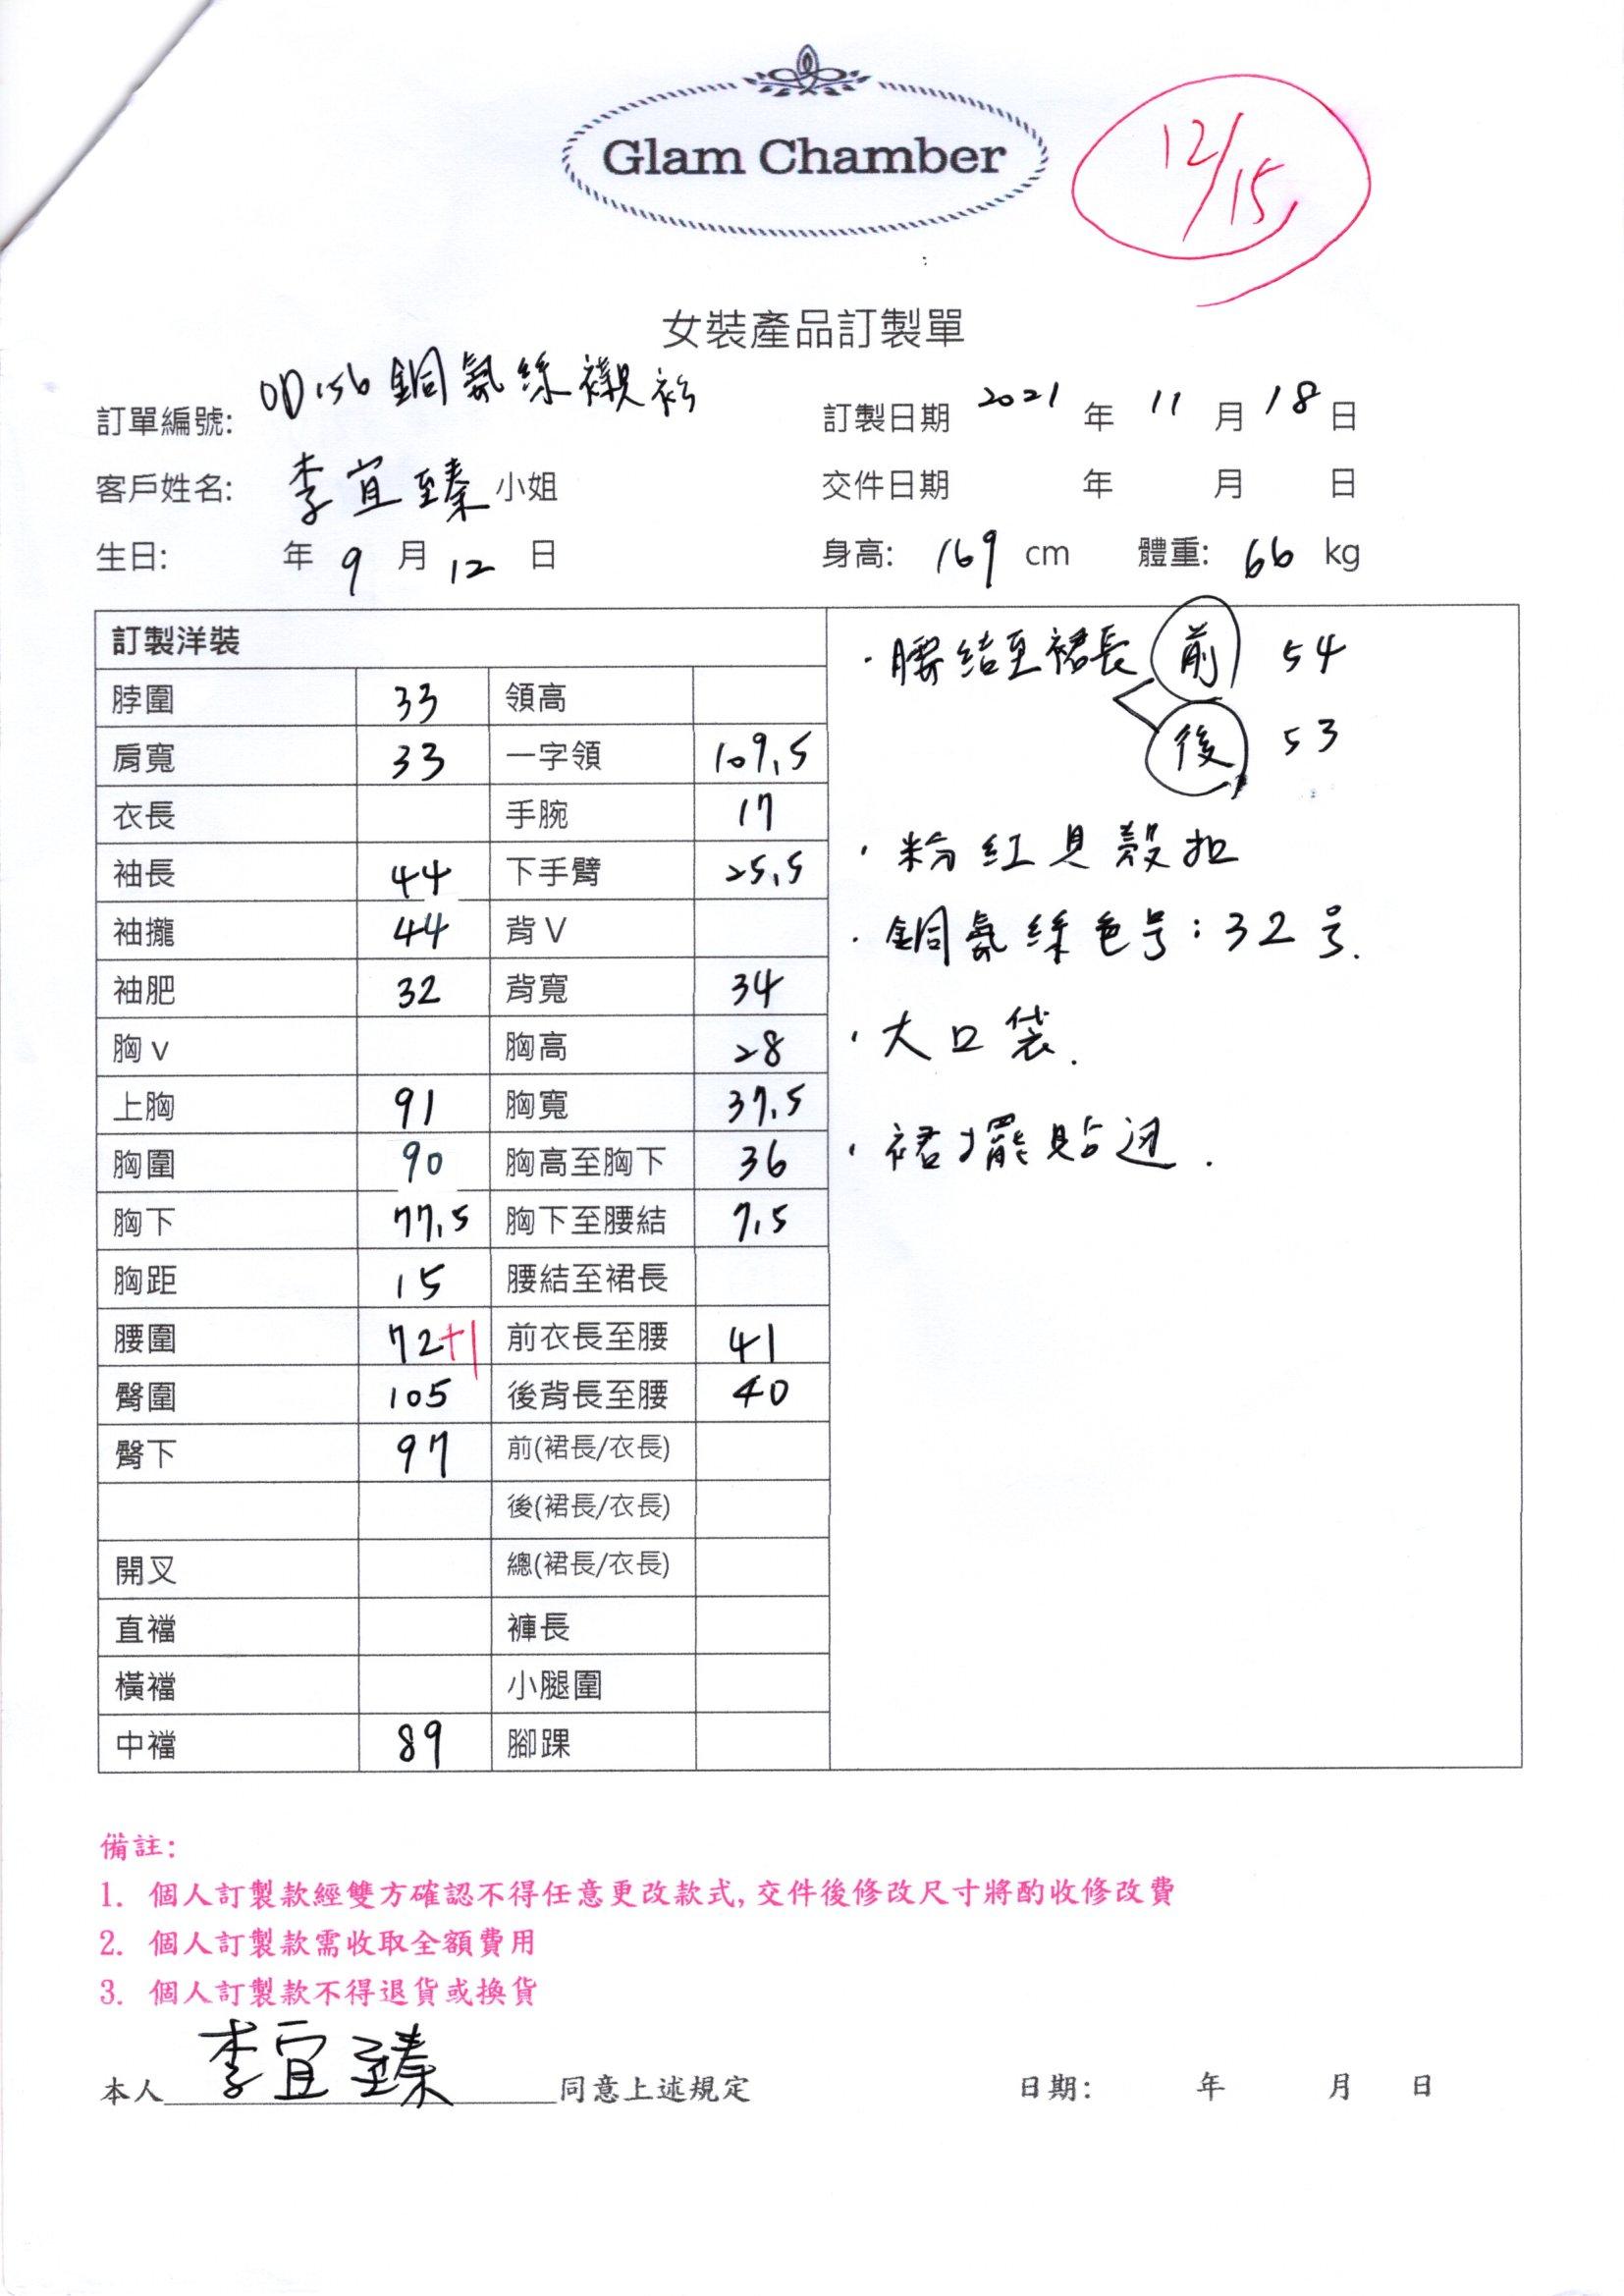 Glam Chamber
12/15
女裝產品訂製單
訂單編號: OD156銅氨絲襯衫 訂製日期 2021 年 11 月 18 日
客戶姓名: 李宜臻 小姐 交件日期 年 月 日
生日: 年 9 月 12 日 身高: 169 cm 體重: 66 kg
訂製洋裝
脖圍 33 領高
肩寬 33 一字領 109.5
衣長 手腕 17
袖長 44 下手臂 25.5
袖攏 44 背V
袖肥 32 背寬 34
胸v 胸高 28
上胸 91 胸寬 37.5
胸圍 90 胸高至胸下 36
胸下 77.5 胸下至腰結 7.5
胸距 15 腰結至裙長
腰圍 72+1 前衣長至腰 41
臀圍 105 後背長至腰 40
臀下 97 前(裙長/衣長)
後(裙長/衣長)
開叉 總(裙長/衣長)
直襠 褲長
橫襠 小腿圍
中襠 89 腳踝
·腰結至裙長 前 54
後 53
·粉紅貝殼扣
·銅氨絲色号:32号.
·大口袋.
·裙擺貼边.
備註:
1. 個人訂製款經雙方確認不得任意更改款式,交件後修改尺寸將酌收修改費
2. 個人訂製款需收取全額費用
3. 個人訂製款不得退貨或換貨
本人 李宜臻 同意上述規定 日期: 年 月 日